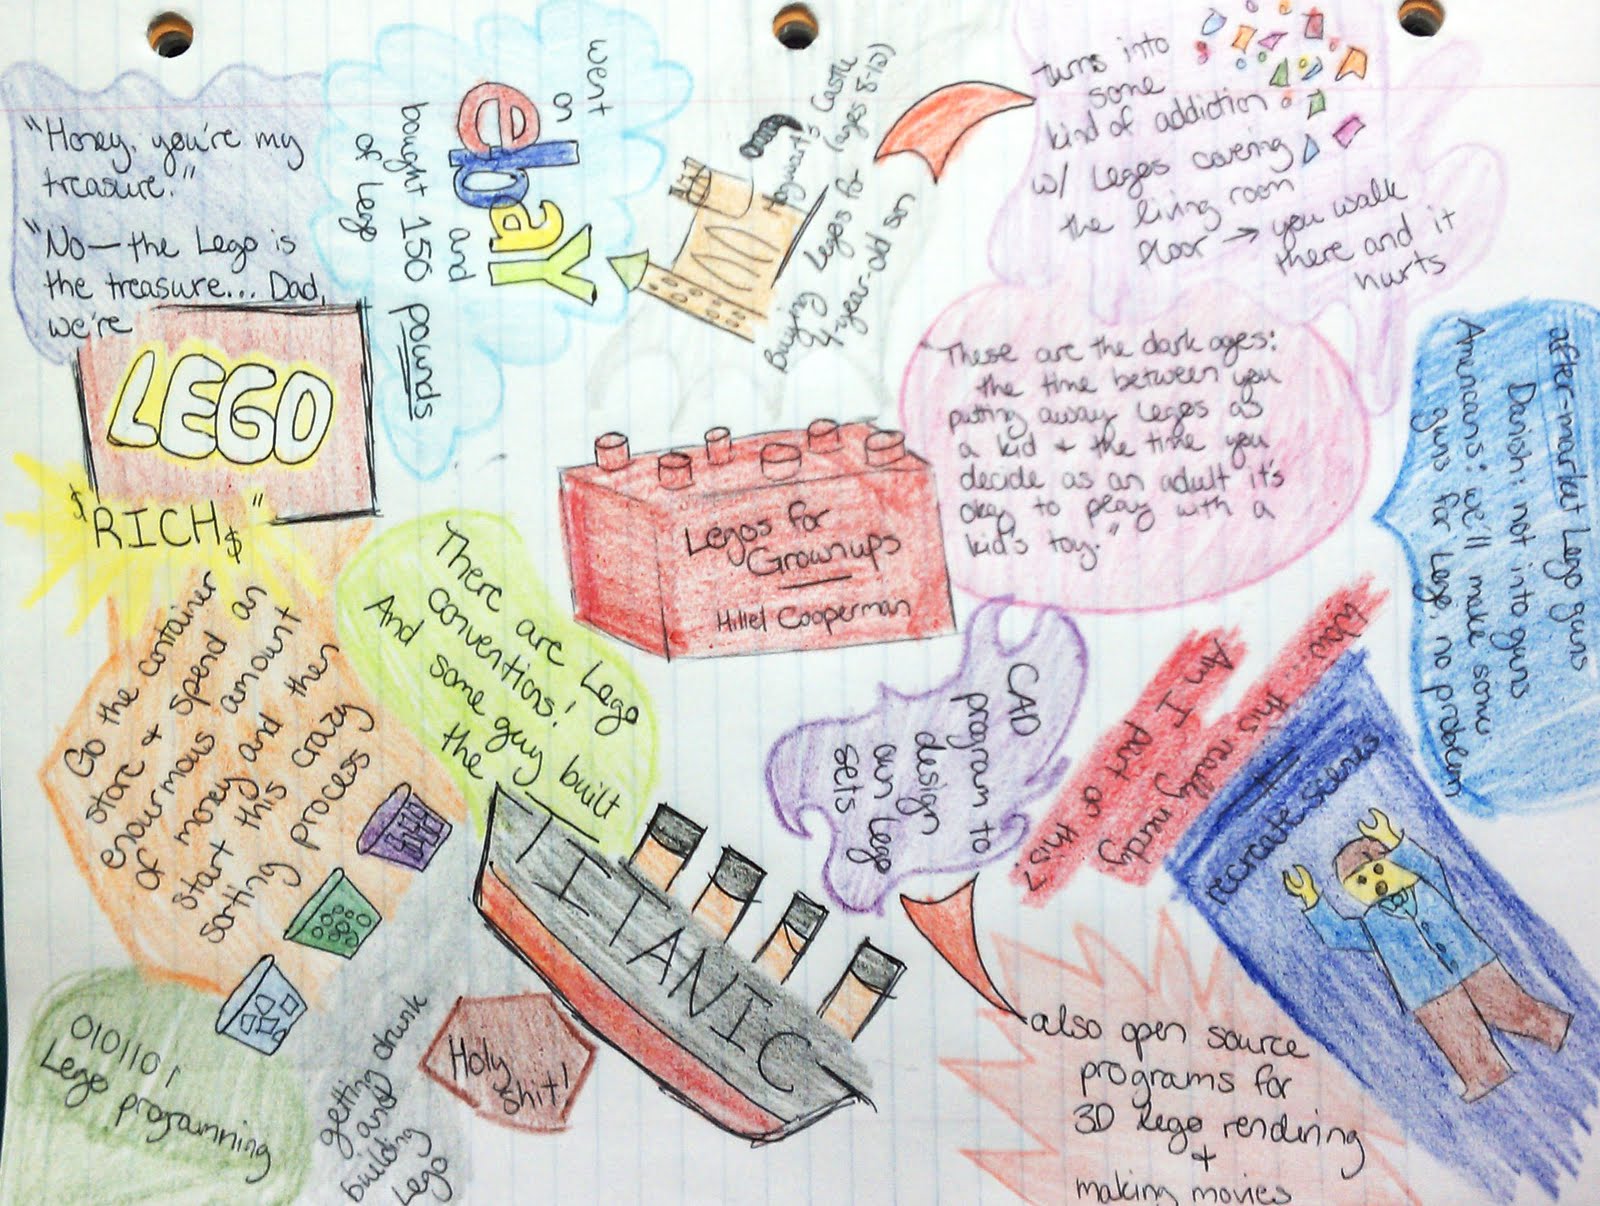 "Honey, you're my
treasure."
"No—the Lego is
the treasure... Dad,
we're
LEGO
$ RICH $"
went
on
ebay
and
bought 150 pounds
of Lego
Hogwart's Castle
(ages 8-12)
Buying Legos for
4-year-old son
turns into
some
kind of addiction
w/ Legos covering
the living room
floor → you walk
there and it
hurts
"These are the dark ages:
the time between you
putting away Legos as
a kid + the time you
decide as an adult it's
okay to play with a
kid's toy."
after-market Lego guns
Danish: not into guns
Americans: we'll make some
guns for Lego, no problem
Legos for
Grownups
Hillel Cooperman
Go the container
store + spend an
enourmous amount
of money and then
start this crazy
sorting process
There are Lego
conventions!
And some guy built
the
TITANIC
Holy
shit!
CAD
program to
design
own Lego
sets
Wow... this is really nerdy
Am I part of
this?
recreate scenes
also open source
programs for
3D lego rendering
+
making movies
0101101
Lego programming
getting drunk
and
building
Lego